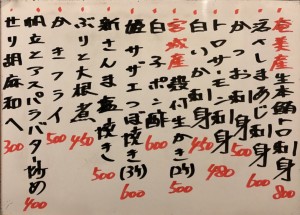 奄美産生本鮪トロ刺身 800
活〆しまあじ刺身 600
かつお刺身 500
トロサーモン刺身 480
白いか刺身 450
宮城産殻付生かき(2ヶ) 500
白子ポン酢 600
姫サザエつぼ焼き(3ヶ) 600
新さんま塩焼き 500
ぶりと大根煮 450
かきフライ 500
帆立とアスパラバター炒め 400
せり胡麻和へ 300